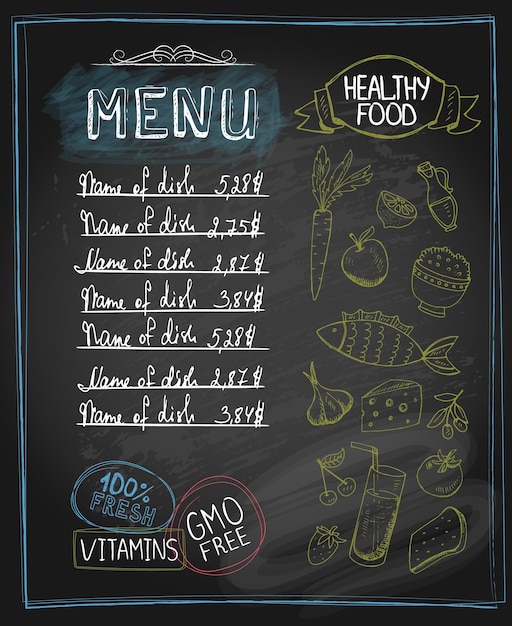 MENU
Name of dish 5,28$
Name of dish 2,75$
Name of dish 2,87$
Name of dish 3,84$
Name of dish 5,28$
Name of dish 2,87$
Name of dish 3,84$
HEALTHY
FOOD
100%
FRESH
VITAMINS
GMO
FREE